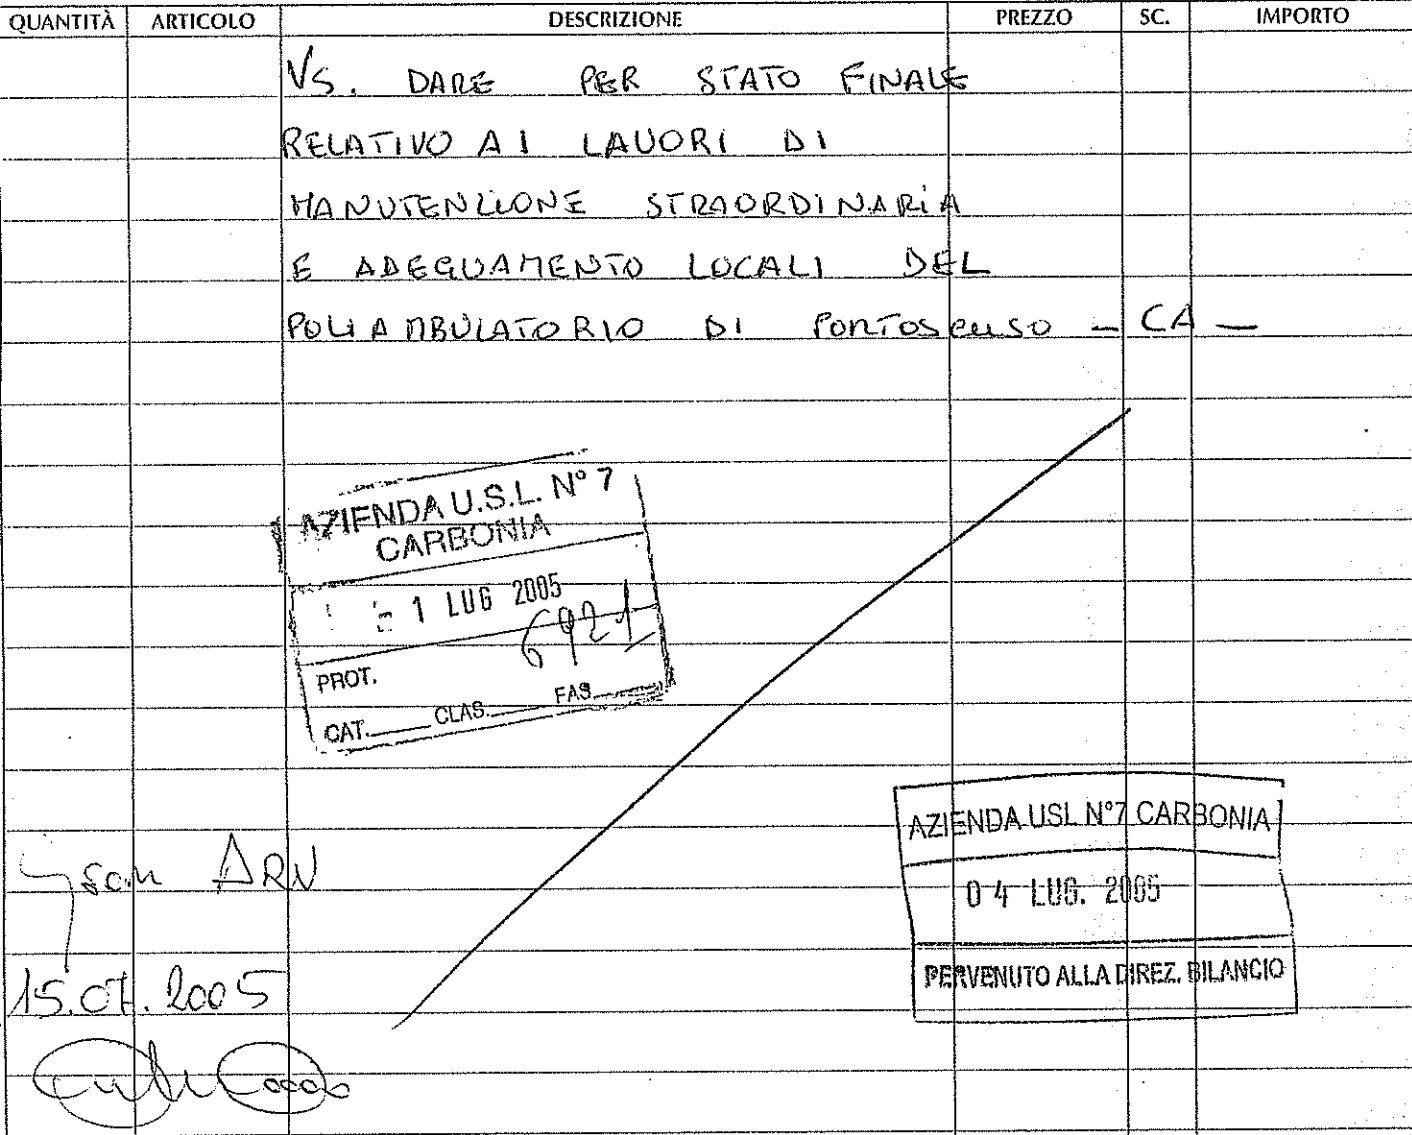 QUANTITÀ ARTICOLO DESCRIZIONE PREZZO SC. IMPORTO
VS. DARE PER STATO FINALE
RELATIVO AI LAVORI DI
MANUTENZIONE STRAORDINARIA
E ADEGUAMENTO LOCALI DEL
POLIAMBULATORIO DI PORTOSCUSO - CA -
AZIENDA U.S.L. N° 7
CARBONIA
- 1 LUG 2005
6921
PROT.
CAT. CLAS. FAS.
AZIENDA USL N°7 CARBONIA
04 LUG. 2005
PERVENUTO ALLA DIREZ. BILANCIO
15.07.2005